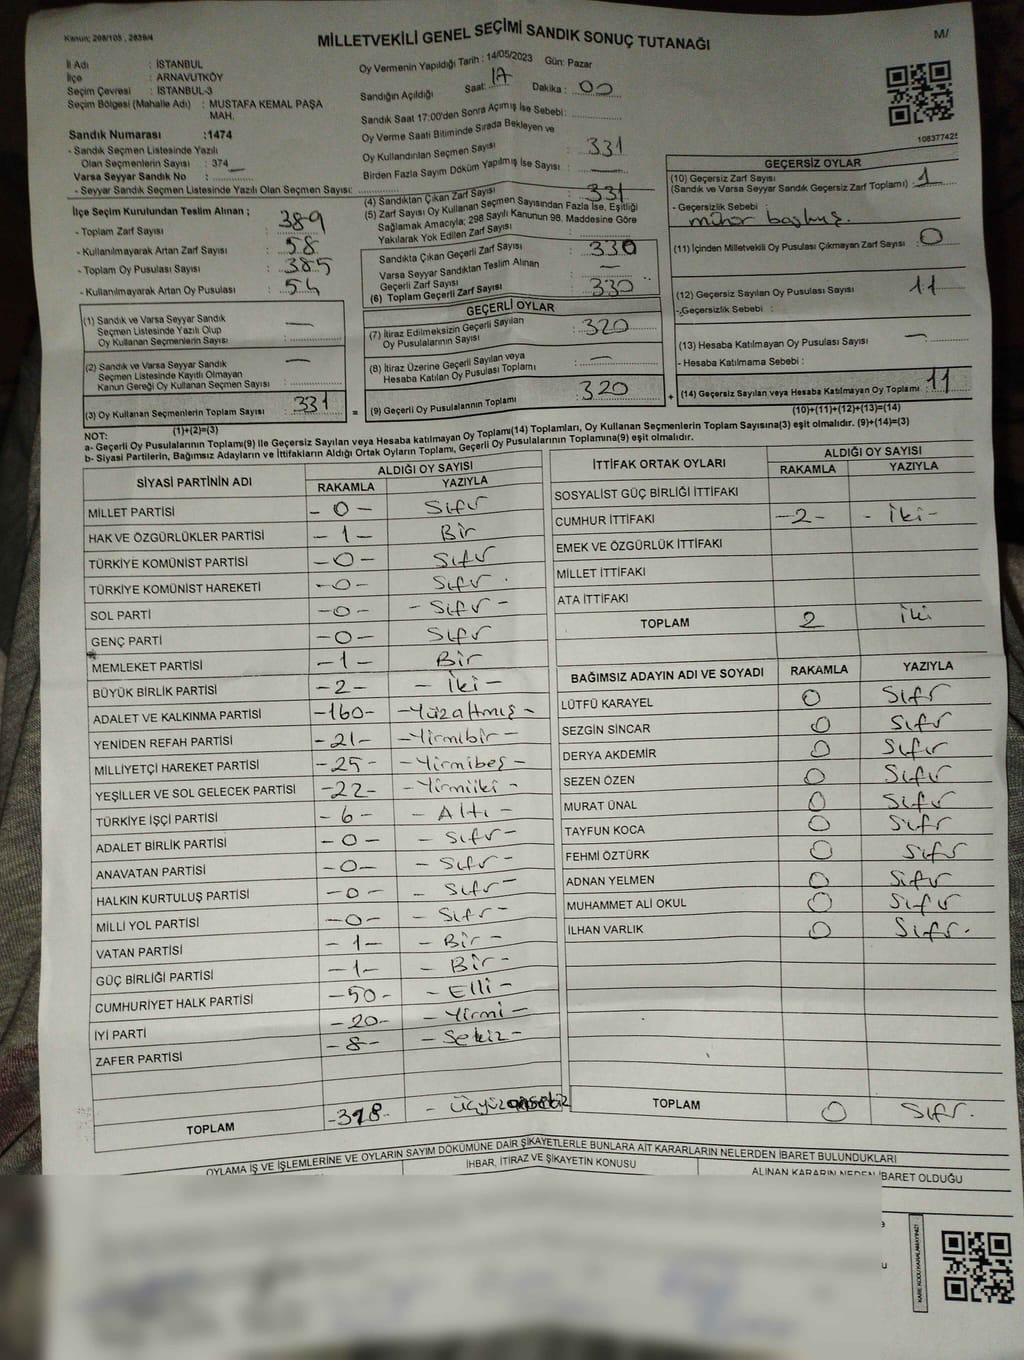 Kanun: 298/105, 2839/4
MİLLETVEKİLİ GENEL SEÇİMİ SANDIK SONUÇ TUTANAĞI
M/
İl Adı : İSTANBUL
İlçe : ARNAVUTKÖY
Seçim Çevresi : İSTANBUL-3
Seçim Bölgesi (Mahalle Adı) : MUSTAFA KEMAL PAŞA
MAH.
Sandık Numarası : 1474
- Sandık Seçmen Listesinde Yazılı
Olan Seçmenlerin Sayısı : 374
Varsa Seyyar Sandık No : —
- Seyyar Sandık Seçmen Listesinde Yazılı Olan Seçmen Sayısı:
Oy Vermenin Yapıldığı Tarih : 14/05/2023 Gün: Pazar
Sandığın Açıldığı Saat: 17 Dakika : 00
Sandık Saat 17:00'den Sonra Açılmış İse Sebebi:
Oy Verme Saati Bitiminde Sırada Bekleyen ve
Oy Kullandırılan Seçmen Sayısı : 331
Birden Fazla Sayım Döküm Yapılmış İse Sayısı : —
10837742
İlçe Seçim Kurulundan Teslim Alınan ;
- Toplam Zarf Sayısı : 389
- Kullanılmayarak Artan Zarf Sayısı : 58
- Toplam Oy Pusulası Sayısı : 385
- Kullanılmayarak Artan Oy Pusulası : 54
(1) Sandık ve Varsa Seyyar Sandık
Seçmen Listesinde Yazılı Olup
Oy Kullanan Seçmenlerin Sayısı : —
(2) Sandık ve Varsa Seyyar Sandık
Seçmen Listesinde Kayıtlı Olmayan
Kanun Gereği Oy Kullanan Seçmen Sayısı : —
(3) Oy Kullanan Seçmenlerin Toplam Sayısı : 331
(1)+(2)=(3)
(4) Sandıktan Çıkan Zarf Sayısı : 331
(5) Zarf Sayısı Oy Kullanan Seçmen Sayısından Fazla İse, Eşitliği
Sağlamak Amacıyla; 298 Sayılı Kanunun 98. Maddesine Göre
Yakılarak Yok Edilen Zarf Sayısı :
Sandıkta Çıkan Geçerli Zarf Sayısı : 330
Varsa Seyyar Sandıktan Teslim Alınan
Geçerli Zarf Sayısı : —
(6) Toplam Geçerli Zarf Sayısı : 330
GEÇERLİ OYLAR
(7) İtiraz Edilmeksizin Geçerli Sayılan
Oy Pusulalarının Sayısı : 320
(8) İtiraz Üzerine Geçerli Sayılan veya
Hesaba Katılan Oy Pusulası Toplamı : —
= (9) Geçerli Oy Pusulalarının Toplamı : 320
GEÇERSİZ OYLAR
(10) Geçersiz Zarf Sayısı
(Sandık ve Varsa Seyyar Sandık Geçersiz Zarf Toplamı) : 1
- Geçersizlik Sebebi :
mühür
(11) İçinden Milletvekili Oy Pusulası Çıkmayan Zarf Sayısı : 0
(12) Geçersiz Sayılan Oy Pusulası Sayısı : 11
- Geçersizlik Sebebi :
(13) Hesaba Katılmayan Oy Pusulası Sayısı : —
- Hesaba Katılmama Sebebi :
+ (14) Geçersiz Sayılan veya Hesaba Katılmayan Oy Toplamı : 11
(10)+(11)+(12)+(13)=(14)
NOT:
a- Geçerli Oy Pusulalarının Toplamı(9) ile Geçersiz Sayılan veya Hesaba katılmayan Oy Toplamı(14) Toplamları, Oy Kullanan Seçmenlerin Toplam Sayısına(3) eşit olmalıdır. (9)+(14)=(3)
b- Siyasi Partilerin, Bağımsız Adayların ve İttifakların Aldığı Ortak Oyların Toplamı, Geçerli Oy Pusulalarının Toplamına(9) eşit olmalıdır.
SİYASİ PARTİNİN ADI ALDIĞI OY SAYISI
RAKAMLA YAZIYLA
MİLLET PARTİSİ - 0 - Sıfır
HAK VE ÖZGÜRLÜKLER PARTİSİ - 1 - Bir
TÜRKİYE KOMÜNİST PARTİSİ - 0 - Sıfır
TÜRKİYE KOMÜNİST HAREKETİ - 0 - Sıfır
SOL PARTİ - 0 - - Sıfır -
GENÇ PARTİ - 0 - Sıfır
MEMLEKET PARTİSİ - 1 - Bir
BÜYÜK BİRLİK PARTİSİ - 2 - - İki -
ADALET VE KALKINMA PARTİSİ - 160 - - Yüzaltmış -
YENİDEN REFAH PARTİSİ - 21 - - Yirmibir -
MİLLİYETÇİ HAREKET PARTİSİ - 25 - - Yirmibeş -
YEŞİLLER VE SOL GELECEK PARTİSİ - 22 - - Yirmiiki -
TÜRKİYE İŞÇİ PARTİSİ - 6 - - Altı -
ADALET BİRLİK PARTİSİ - 0 - - Sıfır -
ANAVATAN PARTİSİ - 0 - - Sıfır -
HALKIN KURTULUŞ PARTİSİ - 0 - - Sıfır -
MİLLİ YOL PARTİSİ - 0 - - Sıfır -
VATAN PARTİSİ - 1 - - Bir -
GÜÇ BİRLİĞİ PARTİSİ - 1 - - Bir -
CUMHURİYET HALK PARTİSİ - 50 - - Elli -
İYİ PARTİ - 20 - - Yirmi -
ZAFER PARTİSİ - 8 - - Sekiz -
TOPLAM - 318 - - Üçyüzonsekiz
İTTİFAK ORTAK OYLARI ALDIĞI OY SAYISI
RAKAMLA YAZIYLA
SOSYALİST GÜÇ BİRLİĞİ İTTİFAKI
CUMHUR İTTİFAKI - 2 - - İki -
EMEK VE ÖZGÜRLÜK İTTİFAKI
MİLLET İTTİFAKI
ATA İTTİFAKI
TOPLAM 2 İki
BAĞIMSIZ ADAYIN ADI VE SOYADI RAKAMLA YAZIYLA
LÜTFÜ KARAYEL 0 Sıfır
SEZGİN SİNCAR 0 Sıfır
DERYA AKDEMİR 0 Sıfır
SEZEN ÖZEN 0 Sıfır
MURAT ÜNAL 0 Sıfır
TAYFUN KOCA 0 Sıfır
FEHMİ ÖZTÜRK 0 Sıfır
ADNAN YELMEN 0 Sıfır
MUHAMMET ALİ OKUL 0 Sıfır
İLHAN VARLIK 0 Sıfır.
TOPLAM 0 Sıfır.
OYLAMA İŞ VE İŞLEMLERİNE VE OYLARIN SAYIM DÖKÜMÜNE DAİR ŞİKAYETLERLE BUNLARA AİT KARARLARIN NELERDEN İBARET BULUNDUKLARI
İHBAR, İTİRAZ VE ŞİKAYETİN KONUSU
ALINAN KARARIN NEDEN İBARET OLDUĞU
KARE KODU KARALAMAYINIZ!